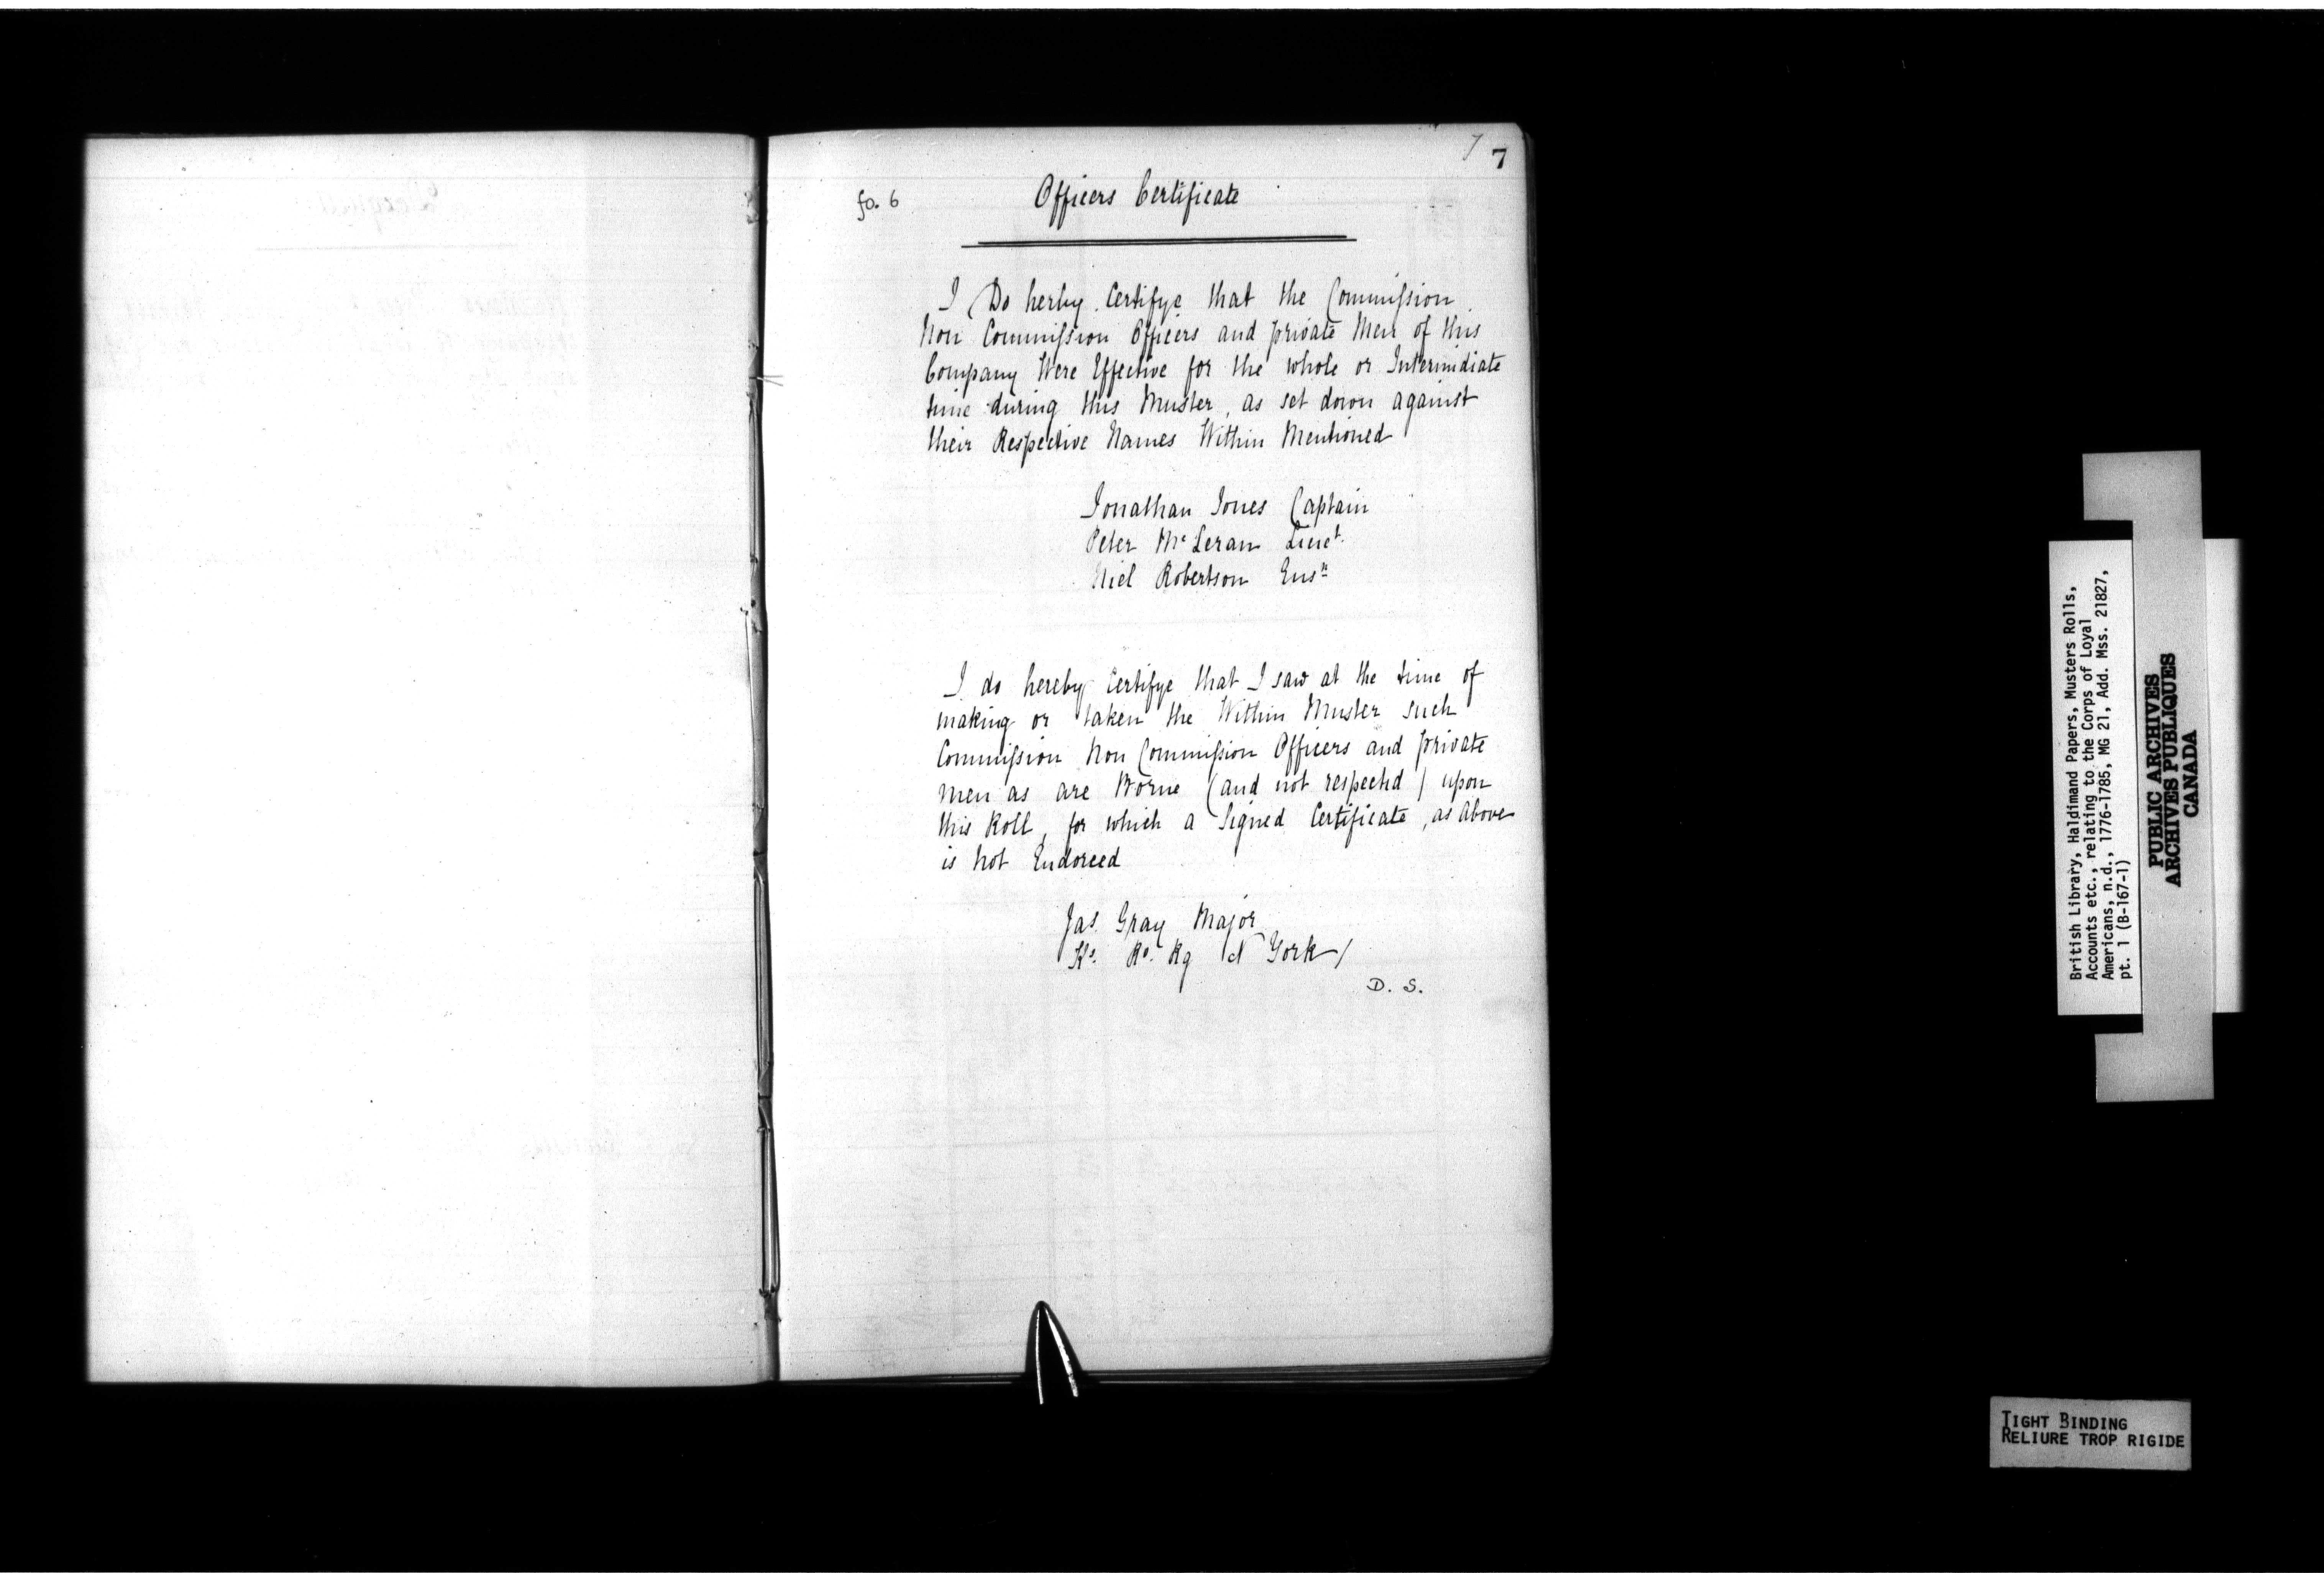 7 7
fo. 6 Officers Certificate
I Do herby Certifye that the Commission
Non Commission Officers and private Men of this
Company Were Effective for the whole or Interimidiate
time during this Muster, as set down against
their Respective Names Within Mentioned
Jonathan Jones Captain
Peter Mc Leran Lieut.
Niel Robertson Ensn
I do hereby Certifye that I saw at the time of
making or taken the Within Muster such
Commission Non Commission Officers and private
men as are Worne (and not respected) upon
this Roll, for which a Signed Certificate, as Above
is not Endorced
Jas. Gray Major
Ks. Rl. Rg N York/
D. S.
British Library, Haldimand Papers, Musters Rolls,
Accounts etc., relating to the Corps of Loyal
Americans, n.d., 1776-1785, MG 21, Add. Mss. 21827,
pt. 1 (B-167-1)
PUBLIC ARCHIVES
ARCHIVES PUBLIQUES
CANADA
TIGHT BINDING
RELIURE TROP RIGIDE